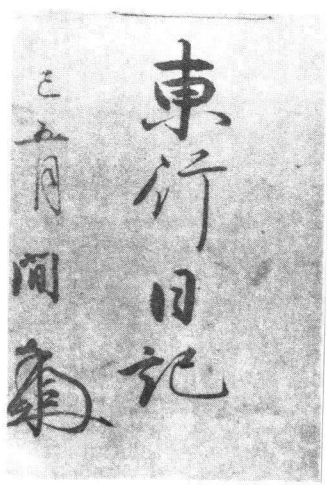 東行日記
巳五月 間